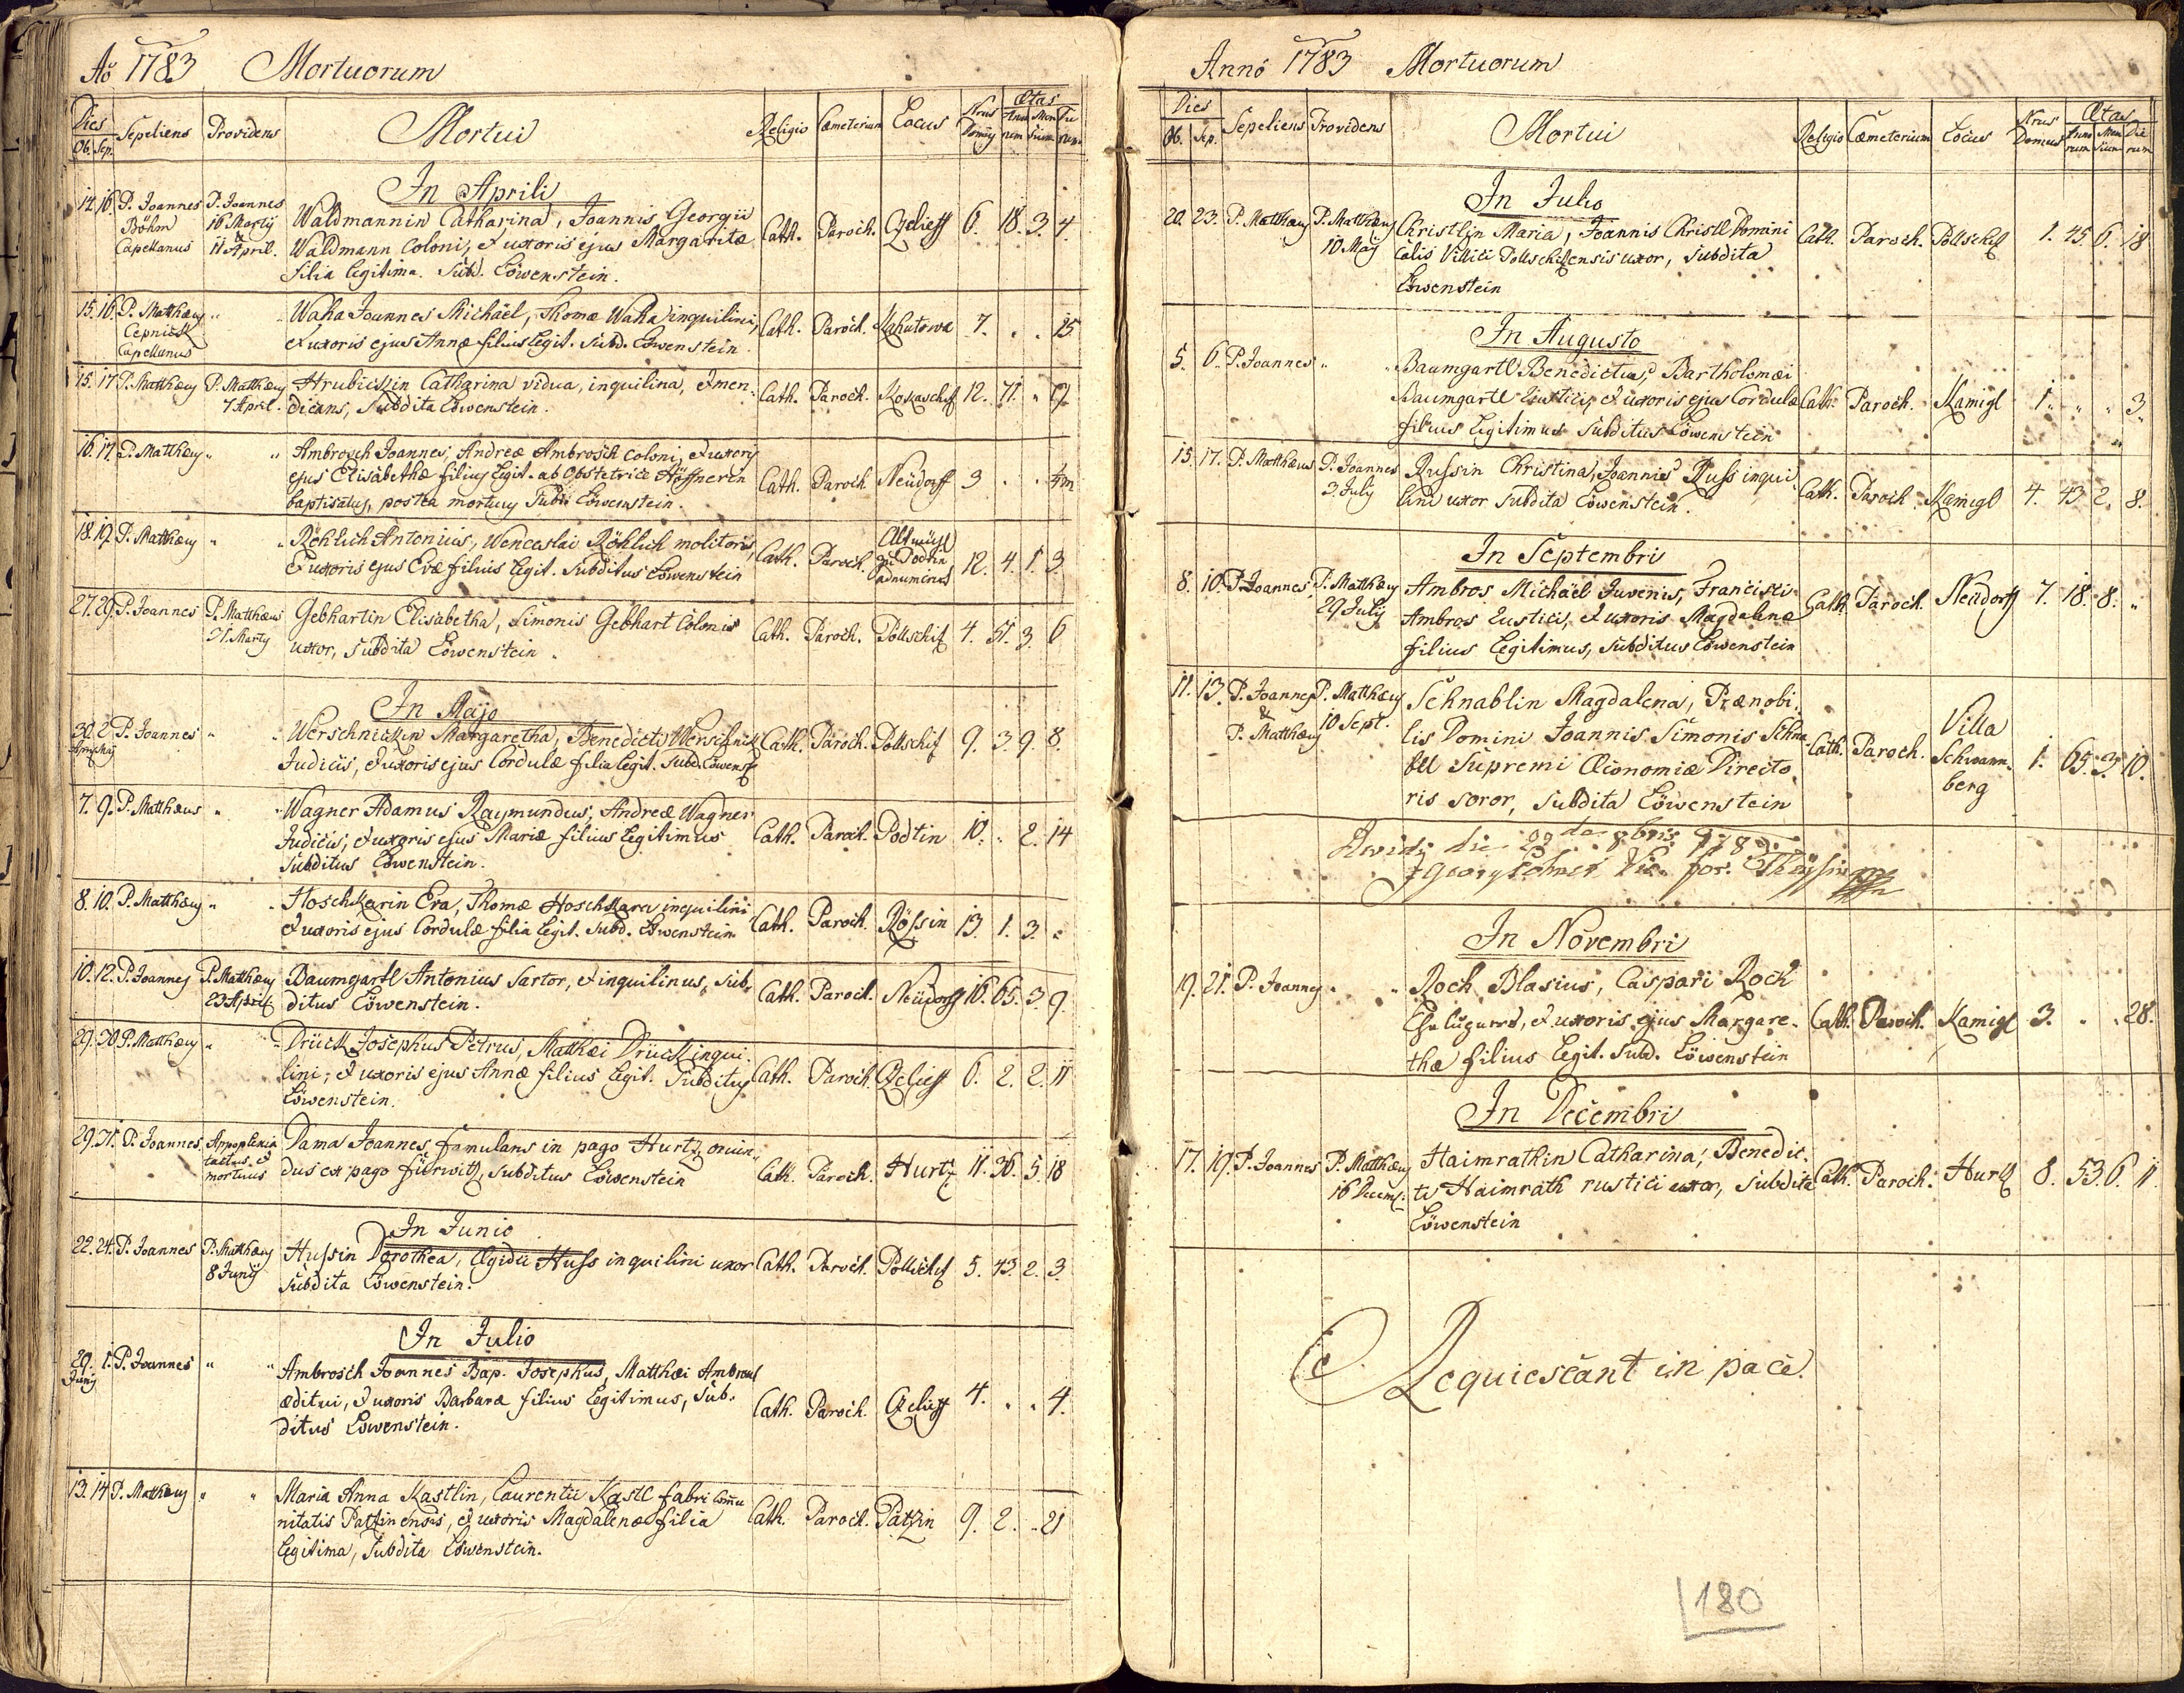 Aō 1783 Mortuorum
Dies Ob. Sep. Sepeliens Providens Mortui Religio Cæmeterium Locus Nrus Domus Ætas Annorum Mensium Dierum
In Aprili
14. 16. P. Joannes Böhm Capellanus P. Joannes 16 Martij & 11 April. Waldmannin Catharina, Joannis Georgii Cath. Paroch. Czelieff 6. 18. 3. 4.
Waldmann Coloni, & uxoris ejus Margaritæ
filia legitima. Subd. Löwenstein.
15. 16. P. Matthæus Cepnick Capellanus " " Waha Joannes Michaël, Thomæ Waha inquilini, Cath. Paroch. Kahutowa 7. . . 25
& uxoris ejus Annæ filius legit. Subd. Löwenstein.
15. 17. P. Matthæus P. Matthæus 7 April. Hrubiczin Catharina vidua, inquilina, & men- Cath. Paroch. Kokaschif 12. 71. "
dicans, Subdita Löwenstein.
16. 17. P. Matthæus " " Ambrosch Joannes, Andreæ Ambrosch Coloni, & uxoris
ejus Elisabethæ filius legit. ab Obstetrice Höffnerin Cath. Paroch. Neüdorff 3 . .
baptisatus, postea mortuus Subd. Löwenstein.
18. 19. P. Matthæus " " Röhlich Antonius, Wenceslai Röhlich molitoris, Cath. Paroch. Altmühl zu Podtin adnumerus 12. 4. 1. 3.
& uxoris ejus Evæ filius legit. Subditus Löwenstein
27. 29. P. Joannes P. Matthæus 31. Marty Gebhartin Elisabetha, Simonis Gebhart Colonis Cath. Paroch. Pollschif 4. 51. 3. 6
uxor, Subdita Löwenstein.
In Majo
30. Apr. 2 Maj P. Joannes " " Werschnickin Margaretha, Benedicti Werschnick Cath. Paroch. Pollschif 9. 3. 9. 8.
Judicis, & uxoris ejus Cordulæ filia legit. Subd. Löwenst.
7. 9. P. Matthæus " " Wagner Adamus Raymundus, Andreæ Wagner
Judicis, & uxoris ejus Mariæ filius legitimus Cath. Paroch. Podtin 10. " 2. 14
Subditus Löwenstein.
8. 10. P. Matthæus " " Hoschkarin Eva, Thomæ Hoschkara inquilini, Cath. Paroch. Rössin 13. 1. 3. "
& uxoris ejus Cordulæ filia legit. Subd. Löwenstein
10. 12. P. Joannes P. Matthæus 23 April Baumgartl Antonius Sartor, & inquilinus, Sub- Cath. Paroch. Neüdorff 16. 65. 3. 9.
ditus Löwenstein.
29. 30. P. Matthæus " " Drück Josephus Petrus, Matthæi Drück inqui-
lini, & uxoris ejus Annæ filius legit. Subditus Cath. Paroch. Czelieff 6. 2. 2. 11
Löwenstein.
29. 31. P. Joannes Appoplexia tactus & mortuus Dama Joannes, famulans in pago Hurtz, oriun-
dus ex pago fürwitz, Subditus Löwenstein Cath. Paroch. Hurtz 11. 36. 5. 18
In Junio
22. 24. P. Joannes P. Matthæus 8 Junij Hussin Dorothea, Ægidii Huss inquilini uxor Cath. Paroch. Pollschif 5. 43. 2. 3.
Subdita Löwenstein.
In Julio
29. Junij 1. P. Joannes " " Ambrosch Joannes Bap. Josephus, Matthæi Ambrosch
æditui, & uxoris Barbaræ filius legitimus, Sub- Cath. Paroch. Czelieff 4. . . 4.
ditus Löwenstein.
13. 14. P. Matthæus " " Maria Anna Kastlin, Laurentii Kastl fabri Commu
nitatis Patzinensis, & uxoris Magdalenæ filia Cath. Paroch. Patzin 9. 2. " 21
legitima, Subdita Löwenstein.
Annō 1783 Mortuorum
Dies Ob. Sep. Sepeliens Providens Mortui Religio Cæmeterium Locus Nrus Domus Ætas Annorum Mensium Dierum
In Julio
20. 23. P. Matthæus P. Matthæus 10. Maij Christlin Maria, Joannis Christl Domini Cath. Paroch. Pollschif 1. 45. 6. 18
calis Villici Pollschifensis uxor, Subdita
Löwenstein
In Augusto
5. 6. P. Joannes " " Baumgartl Benedictus, Bartholomæi
Baumgartl Rustici, & uxoris ejus Cordulæ Cath. Paroch. Kamigl 1. " " 3.
filius legitimus Subditus Löwenstein
15. 17. P. Matthæus P. Joannes 3 July Russin Christina, Joannis Russ inqui- Cath. Paroch. Kamigl 4. 43. 2. 8.
lini uxor Subdita Löwenstein.
In Septembri
8. 10. P. Joannes P. Matthæus 29 July Ambros Michaël Juvenis, Francisci
Ambros Rustici, & uxoris Magdalenæ Cath. Paroch. Neüdorff 7. 18. 8. "
filius legitimus, Subditus Löwenstein
11. 13. P. Joannes & P. Matthæus P. Matthæus 10 Sept. Schnablin Magdalena, Prænobi-
lis Domini Joannis Simonis Schna Cath. Paroch. Villa Schwannberg 1. 65. 3. 10.
bel Supremi Œconomiæ Directo.
ris soror, Subdita Löwenstein
die bris 783
In Novembri
19. 21. P. Joannes " " Roch Blasius, Caspari Roch
& uxoris ejus Margare- Cath. Paroch. Kamigl 3. . . 28.
thæ filius legit. Subd. Löwenstein
In Decembri
17. 19. P. Joannes P. Matthæus 16 Decemb. Haimrathin Catharina, Benedic-
ti Haimrath rustici uxor, Subdita Cath. Paroch. Hurtz 8. 53. 6. 11
Löwenstein
Requiescant in pace.
180